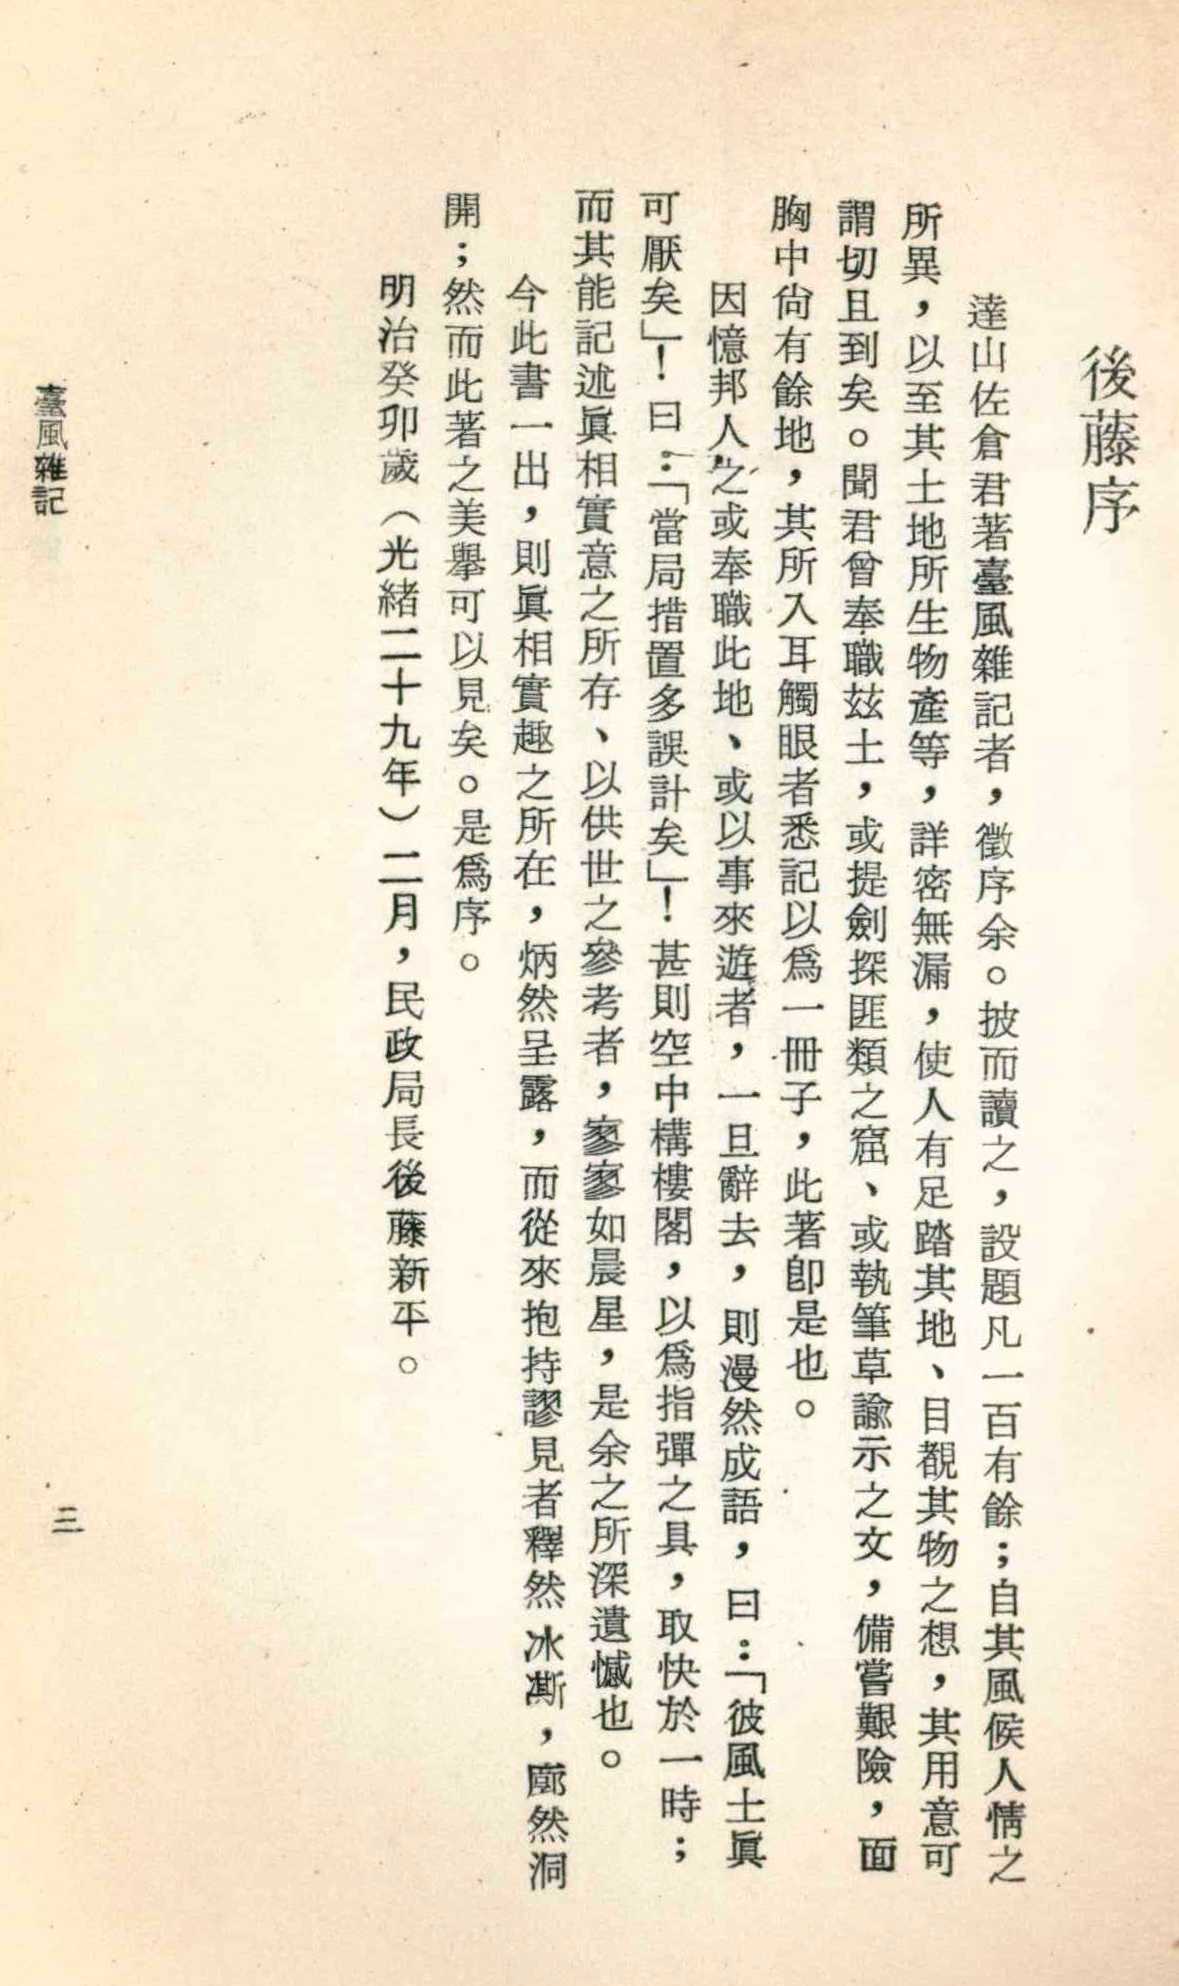 後藤序
達山佐倉君著臺風雜記者，徵序余。披而讀之，設題凡一百有餘；自其風候人情之
所異，以至其土地所生物產等，詳密無漏，使人有足踏其地、目覩其物之想，其用意可
謂切且到矣。聞君曾奉職玆土，或提劍探匪類之窟、或執筆草諭示之文，備嘗艱險，面
胸中尙有餘地，其所入耳觸眼者悉記以爲一冊子，此著卽是也。
因憶邦人之或奉職此地、或以事來遊者，一旦辭去，則漫然成語，曰：「彼風土眞
可厭矣」！曰：「當局措置多誤計矣」！甚則空中構樓閣，以爲指彈之具，取快於一時；
而其能記述眞相實意之所存、以供世之參考者，寥寥如晨星，是余之所深遺憾也。
今此書一出，則眞相實趣之所在，炳然呈露，而從來抱持謬見者釋然冰澌，廓然洞
開；然而此著之美擧可以見矣。是爲序。
明治癸卯歲（光緖二十九年）二月，民政局長後藤新平。
臺風雜記
三